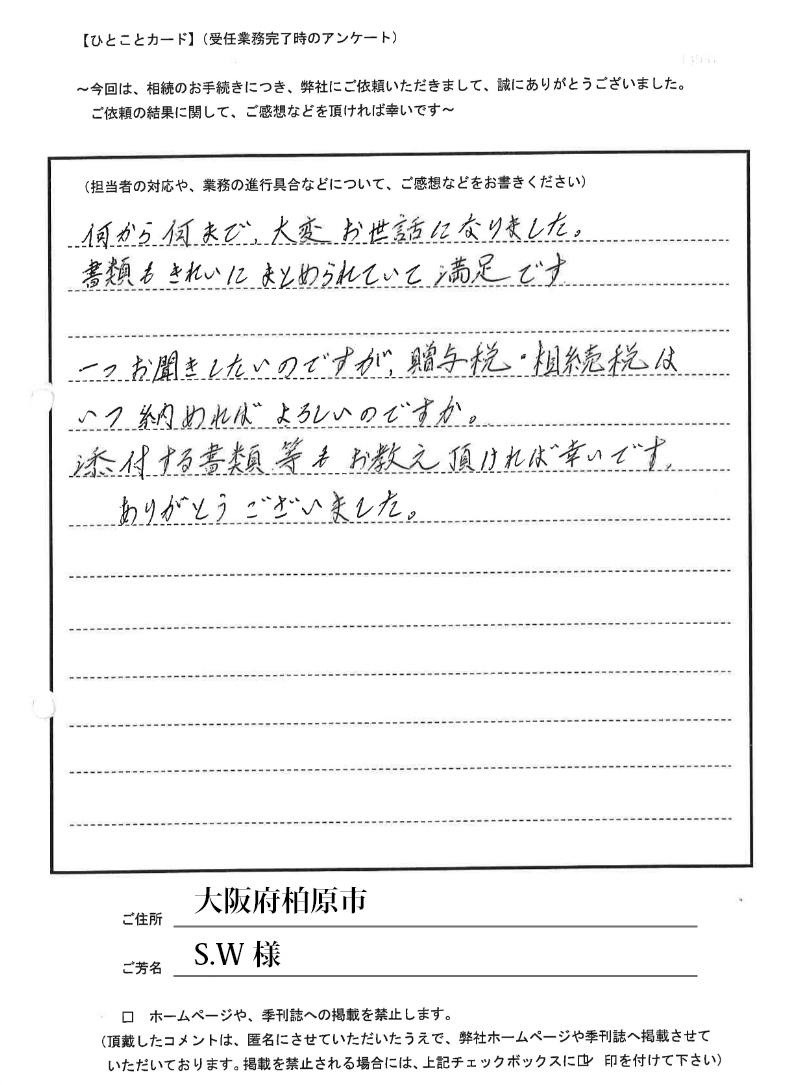 【ひとことカード】(受任業務完了時のアンケート)
~今回は、相続のお手続きにつき、弊社にご依頼いただきまして、誠にありがとうございました。
ご依頼の結果に関して、ご感想などを頂ければ幸いです~
(担当者の対応や、業務の進行具合などについて、ご感想などをお書きください)
何から何まで、大変お世話になりました。
書類もきれいにまとめられていて満足です
一つお聞きしたいのですが、贈与税・相続税は
いつ納めればよろしいのですか。
添付する書類等もお教え頂ければ幸いです。
ありがとうございました。
ご住所 大阪府柏原市
ご芳名 S.W 様
□ ホームページや、季刊誌への掲載を禁止します。
(頂戴したコメントは、匿名にさせていただいたうえで、弊社ホームページや季刊誌へ掲載させて
いただいております。掲載を禁止される場合には、上記チェックボックスに☑ 印を付けて下さい)